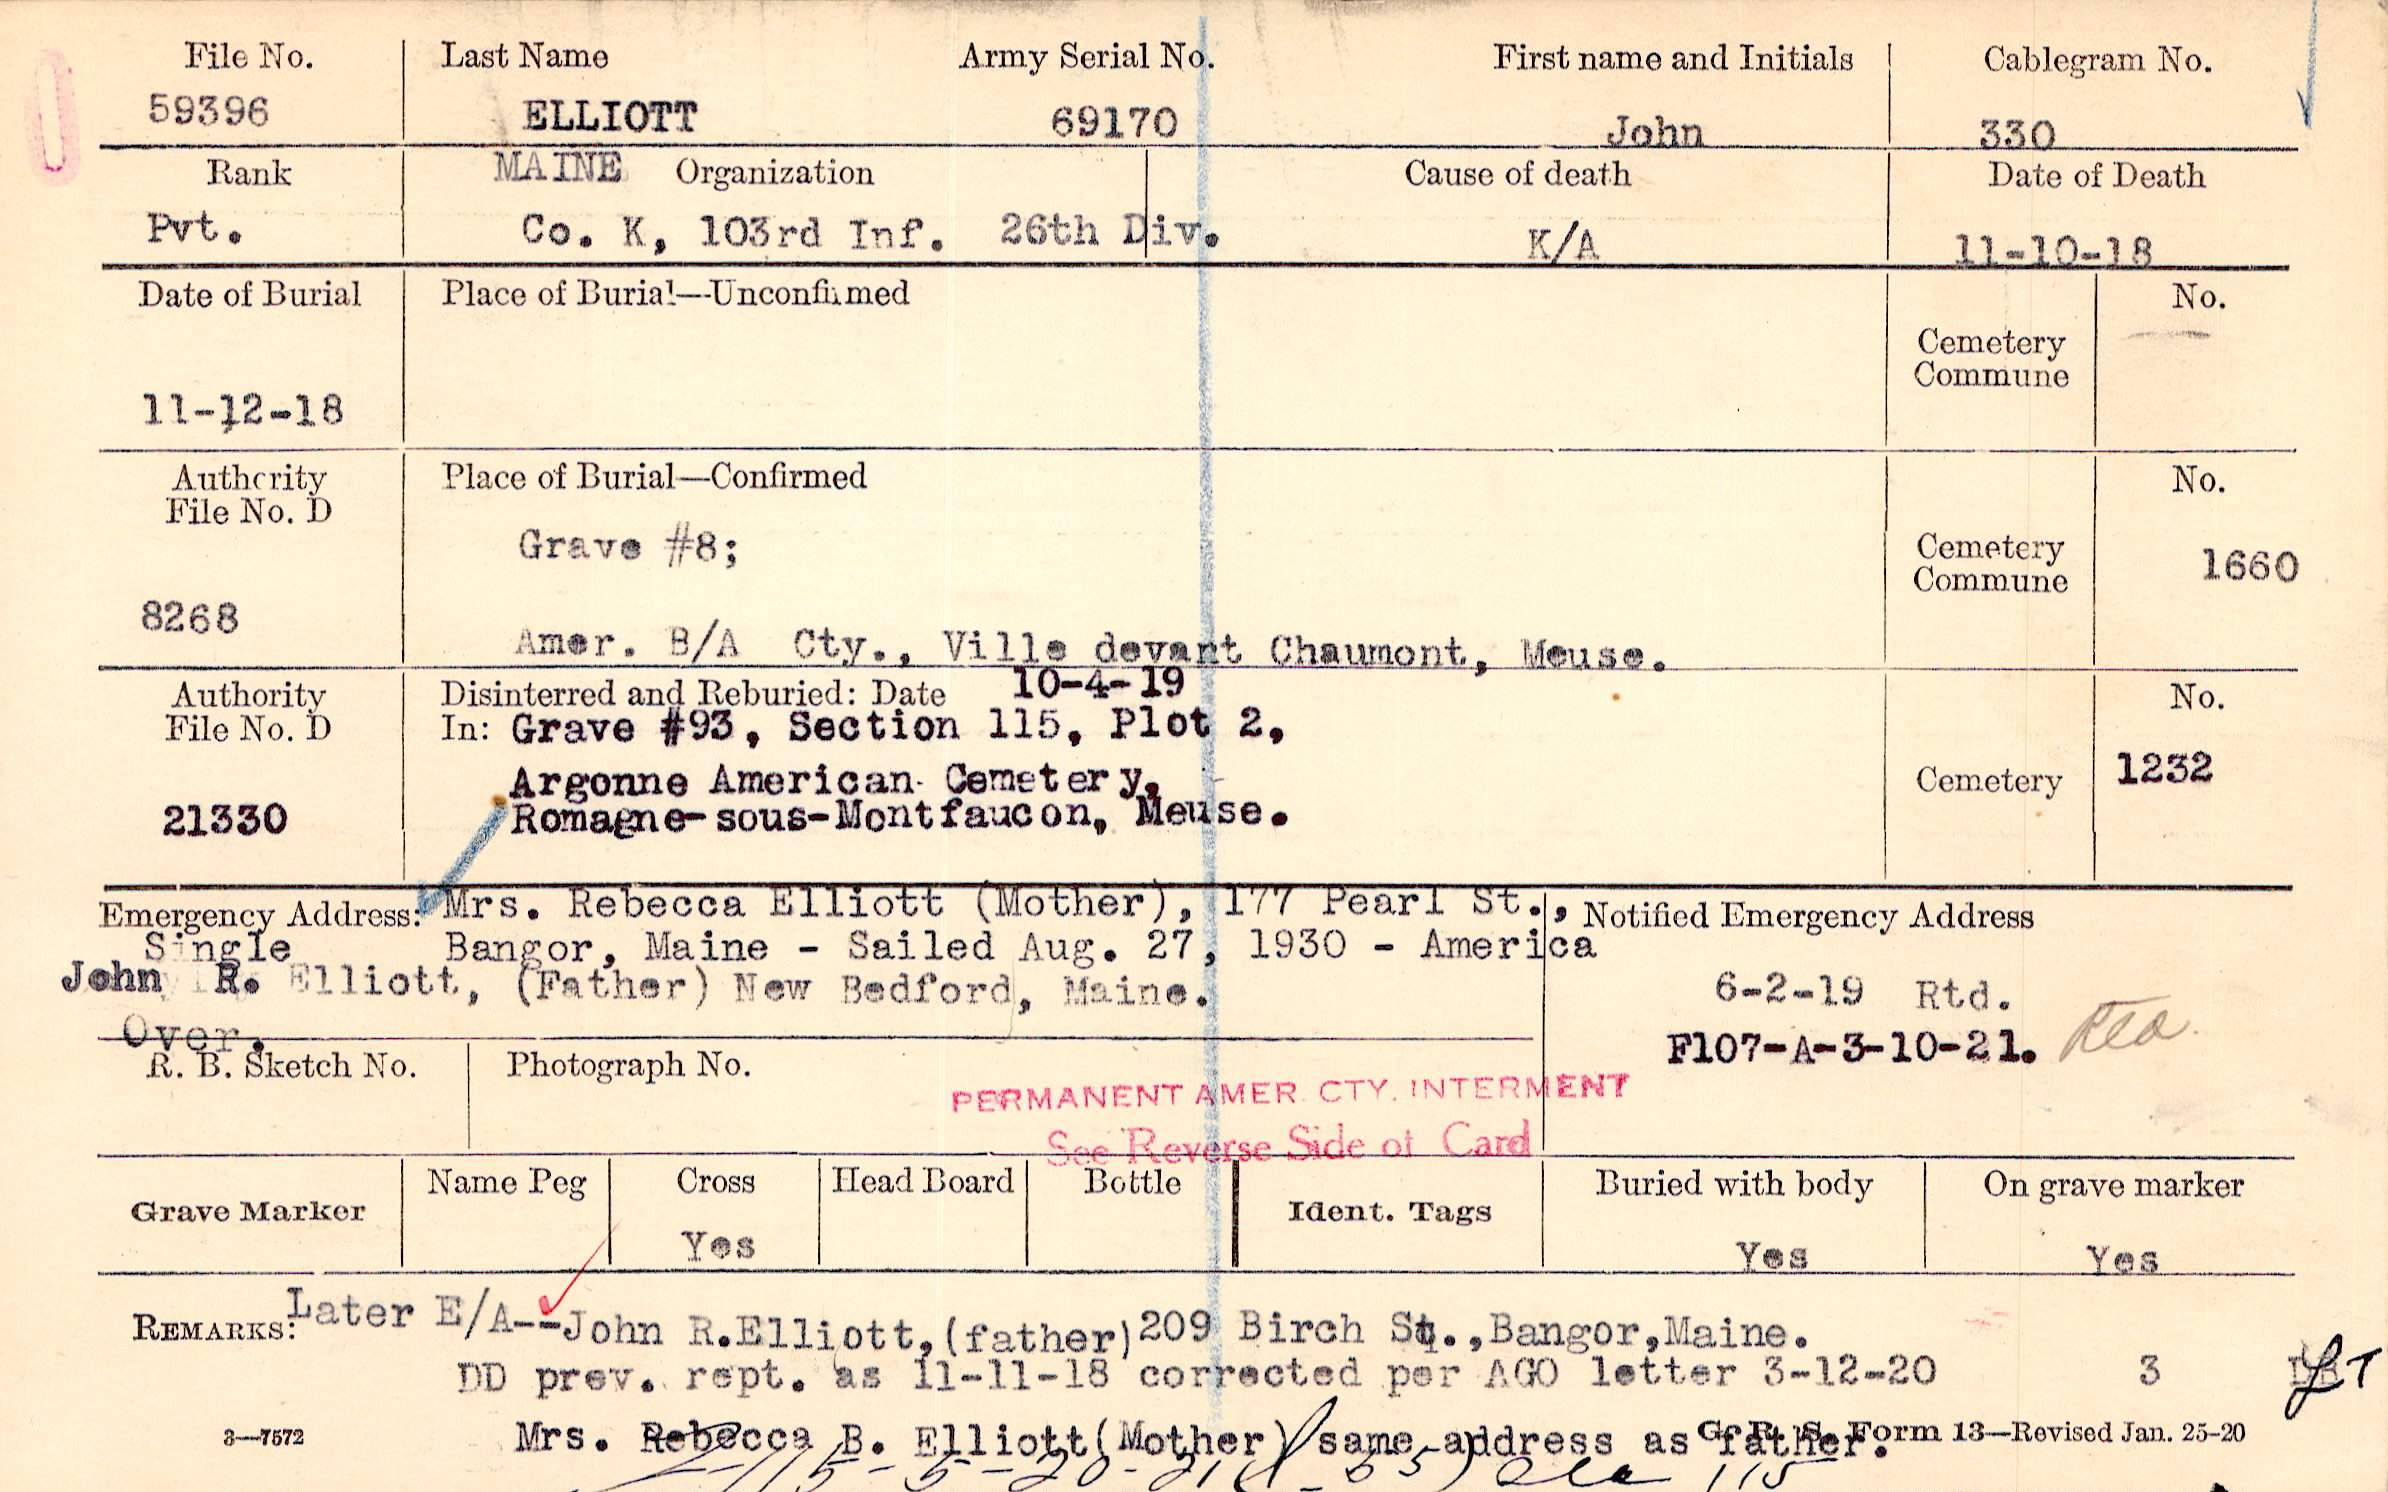 File No. Last Name Army Serial No. First name and Initials Cablegram No.
59396 ELLIOTT 69170 John 330
Rank MAINE Organization Cause of death Date of Death
Pvt. Co. K, 103rd Inf. 26th Div. K/A 11-10-18
Date of Burial Place of Burial—Unconfirmed No.
Cemetery
Commune
11-12-18
Authority Place of Burial—Confirmed No.
File No. D
Grave #8; Cemetery
Commune 1660
8268
Amer. B/A Cty., Ville devant Chaumont, Meuse.
Authority Disinterred and Reburied: Date 10-4-19 No.
File No. D In: Grave #93, Section 115, Plot 2,
Argonne American Cemetery, Cemetery 1232
21330 Romagne-sous-Montfaucon, Meuse.
Emergency Address: Mrs. Rebecca Elliott (Mother), 177 Pearl St., Notified Emergency Address
Single Bangor, Maine - Sailed Aug. 27, 1930 - America
John R. Elliott, (Father) New Bedford, Maine. 6-2-19 Rtd.
Over. F107-A-3-10-21.
R. B. Sketch No. Photograph No.
PERMANENT AMER. CTY. INTERMENT
See Reverse Side of Card
Grave Marker Name Peg Cross Head Board Bottle Ident. Tags Buried with body On grave marker
Yes Yes Yes
REMARKS: Later E/A--John R.Elliott,(father)209 Birch St.,Bangor,Maine.
DD prev. rept. as 11-11-18 corrected per AGO letter 3-12-20 3
3—7572 Mrs. Rebecca B. Elliott(Mother) same address as father. G. R. S. Form 13—Revised Jan. 25-20